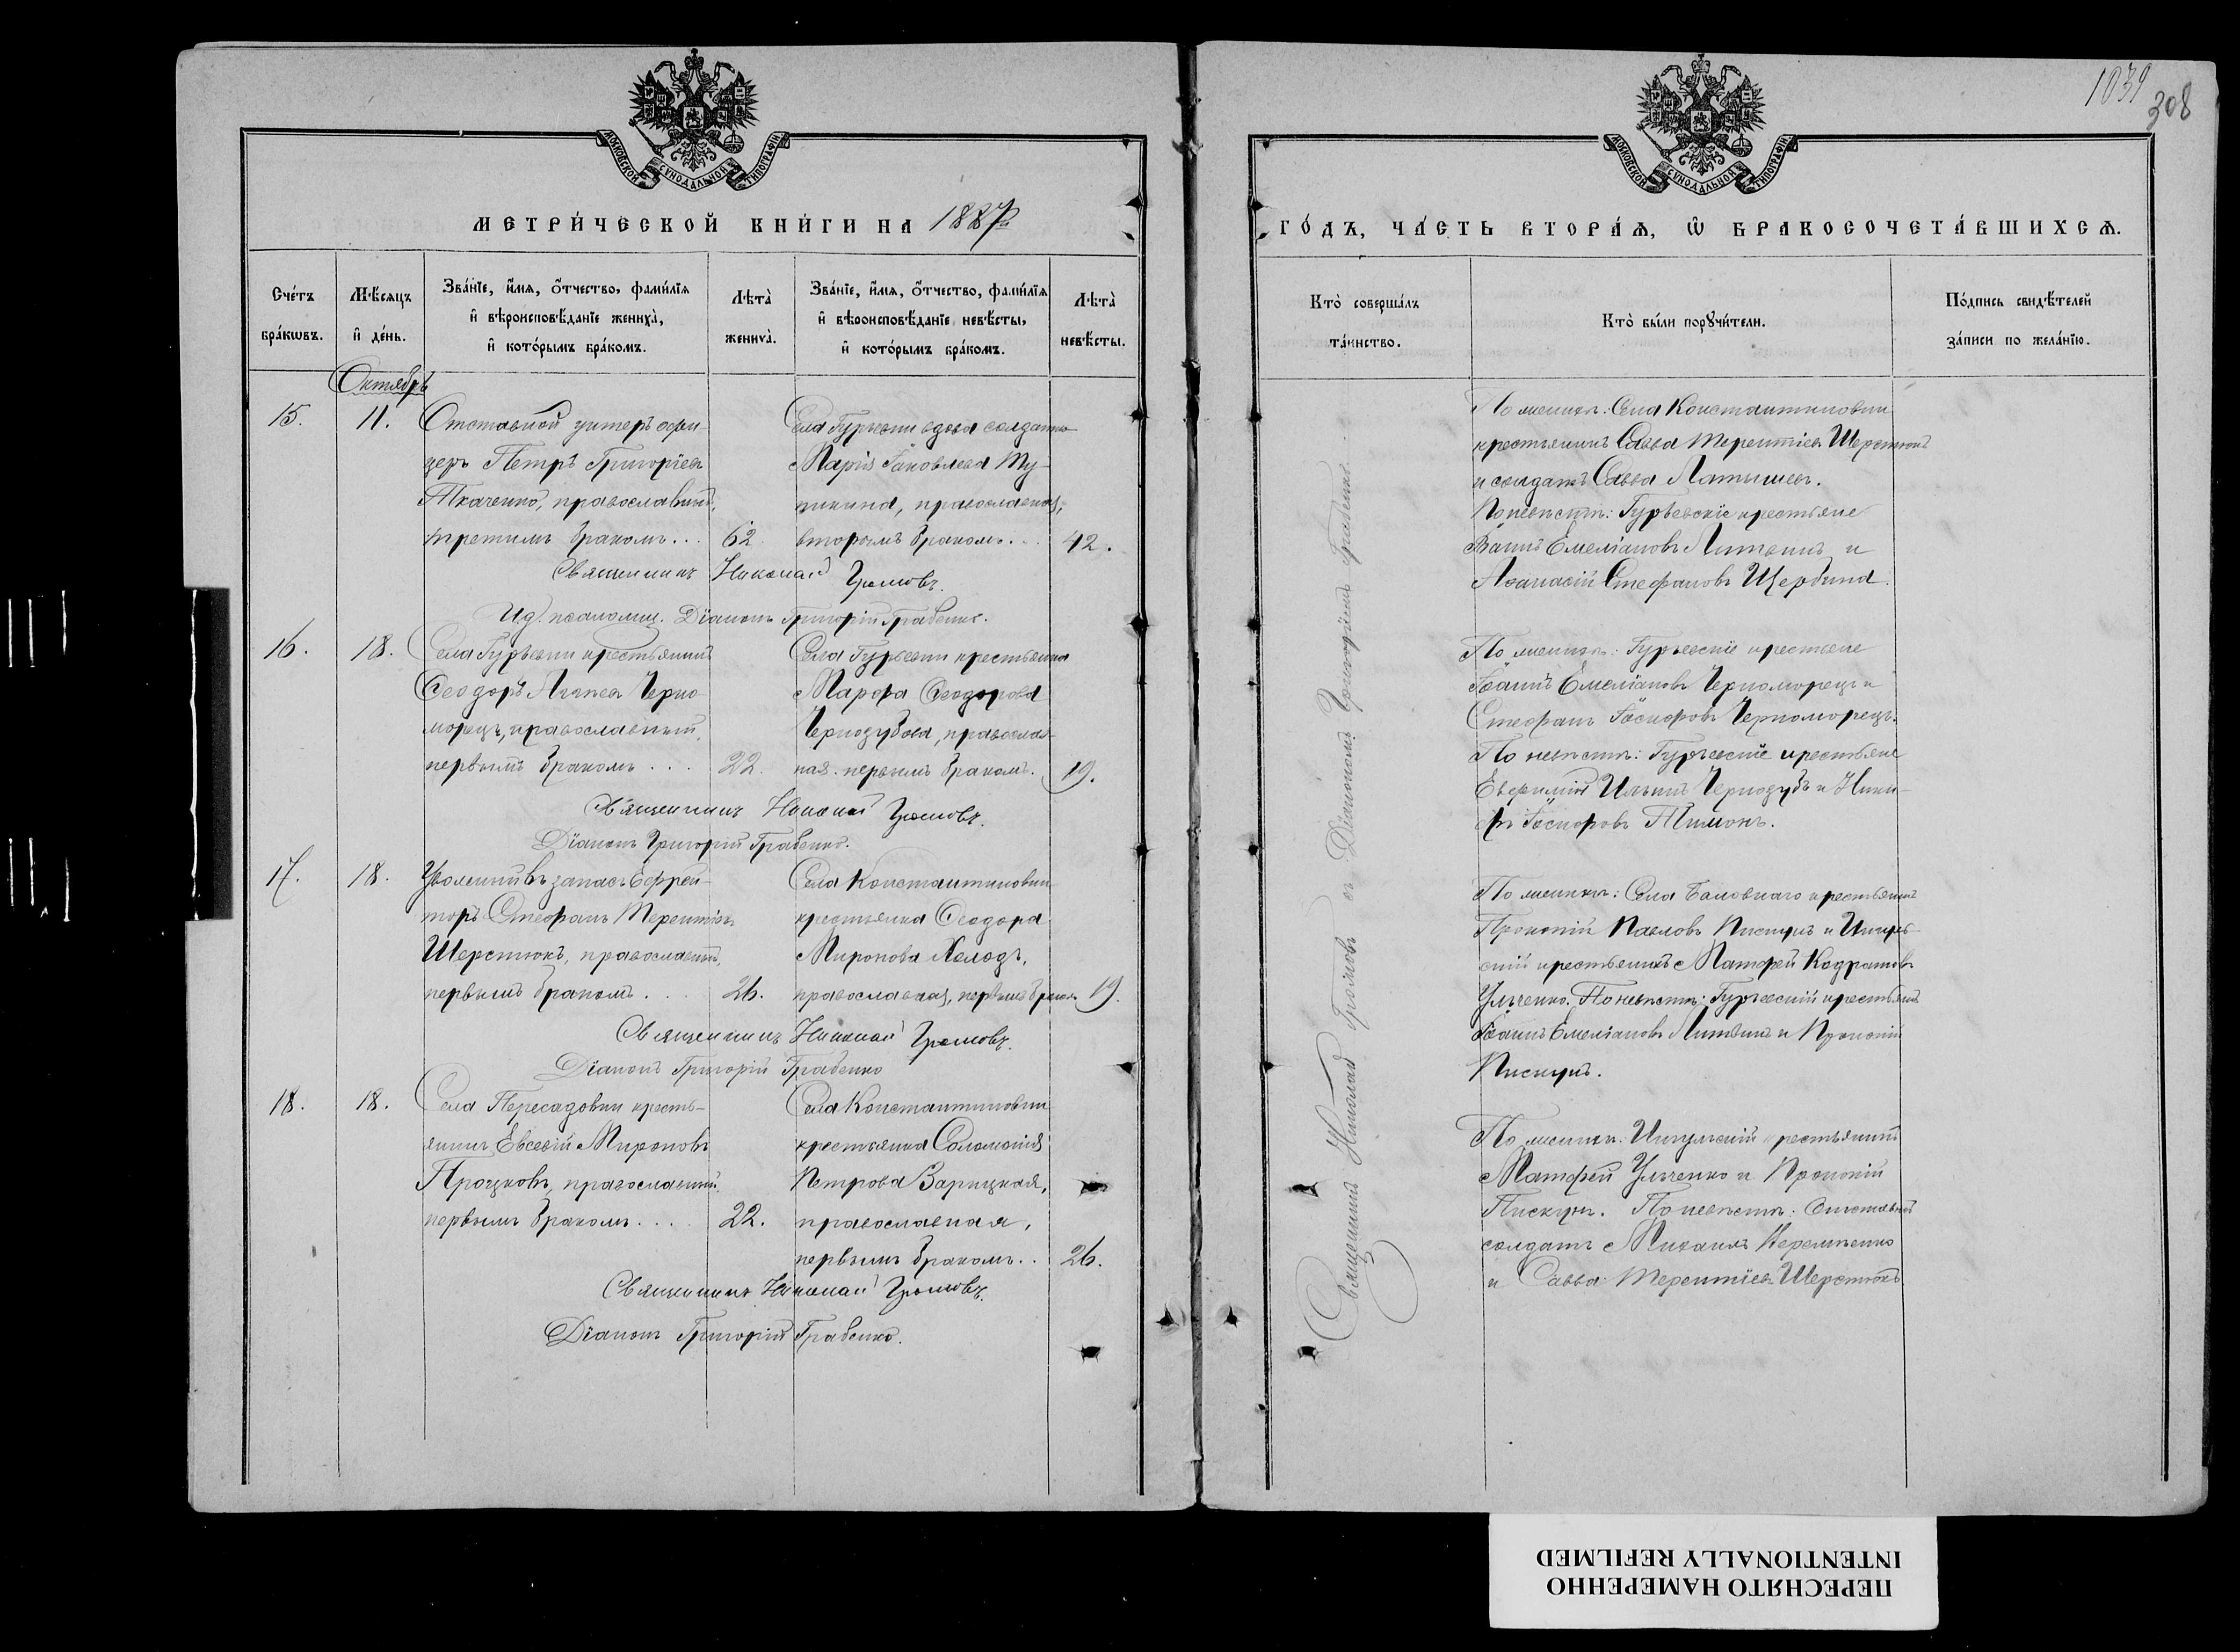 МОСКОВСКОЙ СѴНОДАЛЬНОЙ ТИПОГРАФІИ
МЕТРИ́ЧЕСКОЙ КНИ́ГИ НА 1887
Сче́тъ бра́кѡвъ.
Мѣ́сяцъ и҆ де́нь.
Зва́нїе, и҆́мѧ, ѻ҆́тчество, фами́лїѧ
и҆ вѣроисповѣ́данїе жениха̀,
и҆ кото́рымъ бра́комъ.
Лѣта̀ жениха̀.
Зва́нїе, и҆́мѧ, ѻ҆́тчество, фами́лїѧ
и҆ вѣроисповѣ́данїе невѣ́сты,
и҆ кото́рымъ бра́комъ.
Лѣта̀ невѣ́сты.
Октябрь
15.
11.
Отставной унтеръ офи-
церъ Петръ Григоріевъ
Ткаченко, православный,
третимъ бракомъ...
62.
Села Гурьевки вдова солдатка
Марія Іаковлева
православная,
вторымъ бракомъ...
42.
Священникъ Николай Громовъ.
И. д. псаломщ. Діаконъ Григорій Грабенко.
16.
18.
Села Гурьевки крестьянинъ
Ѳеодоръ Черно-
морецъ, православный,
первымъ бракомъ...
22.
Села Гурьевки крестьянка
Марѳа Ѳеодорова
Чернозубова, православ-
ная, первымъ бракомъ.
19.
Священникъ Николай Громовъ.
Діаконъ Григорій Грабенко.
17.
18.
Уволенный въ запасъ Ефрей-
торъ Стефанъ Терентіевъ
Шерстюкъ, православный,
первымъ бракомъ...
26.
Села Константиновки
крестьянка Ѳеодора
Миронова
православная, первымъ браком
19.
Священникъ Николай Громовъ.
Діаконъ Григорій Грабенко
18.
18.
Села Пересадовки кресть-
янинъ Евсевій Мироновъ
Процковъ, православный,
первымъ бракомъ....
22.
Села Константиновки
крестьянка Соломонія
Петрова Зарицкая,
православная,
первымъ бракомъ..
26.
Священникъ Николай Громовъ.
Діаконъ Григорій Грабенко.
1039
308
МОСКОВСКОЙ СѴНОДАЛЬНОЙ ТИПОГРАФІИ
ГО́ДЪ, ЧА́СТЬ ВТОРА́Ѧ, Ѡ҆ БРАКОСОЧЕТА́ВШИХСѦ.
Кто̀ соверша́лъ та́инство.
Кто̀ бы́ли порꙋчи́тели.
По́дпись свидѣ́телей за́писи по жела́нїю.
Священникъ Николай Громовъ съ Діакономъ Григоріемъ Грабенко.
По женихѣ: Села Константиновки
крестьянинъ Савва Терентіевъ Шерстюкъ
и солдатъ Савва Латышевъ.
По невѣстѣ: Гурьевскіе крестьяне
Іоаннъ Емеліановъ Литвинъ и
Аѳанасій Стефановъ Щербина.
По женихѣ: Гурьевскіе крестьяне
Іоаннъ Емеліановъ Черноморецъ и
Стефанъ Іосифовъ Черноморецъ.
По невѣстѣ: Гурьевскіе крестьяне
Евфимій Ильинъ Чернозубъ и Ники-
форъ Іосифовъ Тимокъ.
По женихѣ: Села Баловнаго крестьянинъ
Прокопій Павловъ Пискунъ и Ингуль-
скій крестьянинъ Матфей Кодратовъ
Ульченко. По невѣстѣ: Гурьевскій крестьянинъ
Іоаннъ Емеліановъ Литвинъ и Прокопій
Пискунъ.
По женихѣ: Ингульскій крестьянинъ
Матфей Ульченко и Прокопій
Пискунъ. По невѣстѣ: Отставной
солдатъ Михаилъ
и Савва Терентіевъ Шерстюкъ
ПЕРЕСНЯТО НАМЕРЕННО
INTENTIONALLY REFILMED